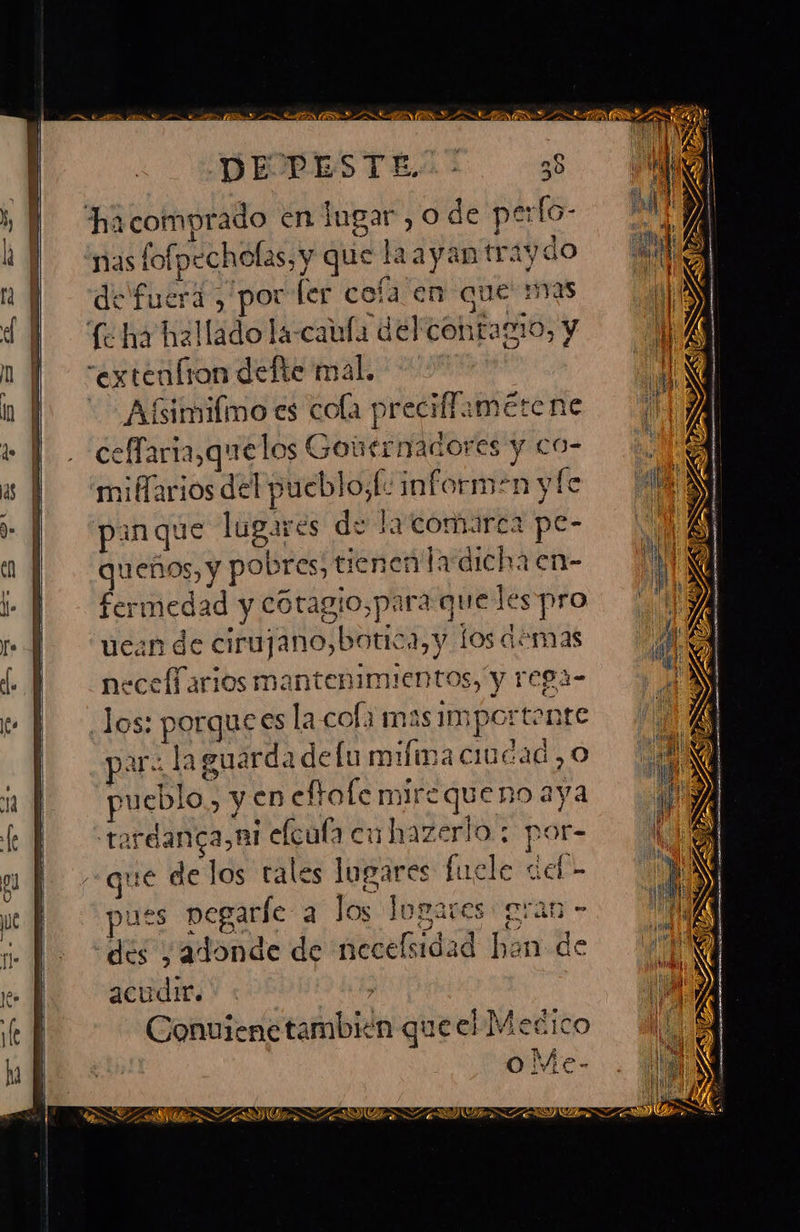 DE PESTE. 38
ha comprado en lugar, o de perſo-
nas ſoſpechoſas, y que la ayan traydo
de fuera, por ſer coſa en que mas
ſe ha hallado la cauſa del contagio, y
extenſion deſte mal.
Aſsimiſmo es coſa preciſſamẽte ne
ceſſaria, que los Gouernadores y co-
miſſarios del pueblo, ſe informen y ſe
pan que lugares de la comarca pe-
queños, y pobres, tienen la dicha en-
fermedad y cõtagio, para que les pro
uean de cirujano, botica, y los demas
neceſſarios mantenimientos, y rega-
los: porque es la coſa mas importante
para la guarda de ſu miſma ciudad, o
pueblo, y en eſto ſe mire que no aya
tardança, ni eſcuſa en hazerlo: por-
que de los tales lugares ſuele deſ-
pues pegarſe a los lugares gran-
des, adonde de neceſsidad han de
acudir.
Conuiene tambien que el Medico
o Me-